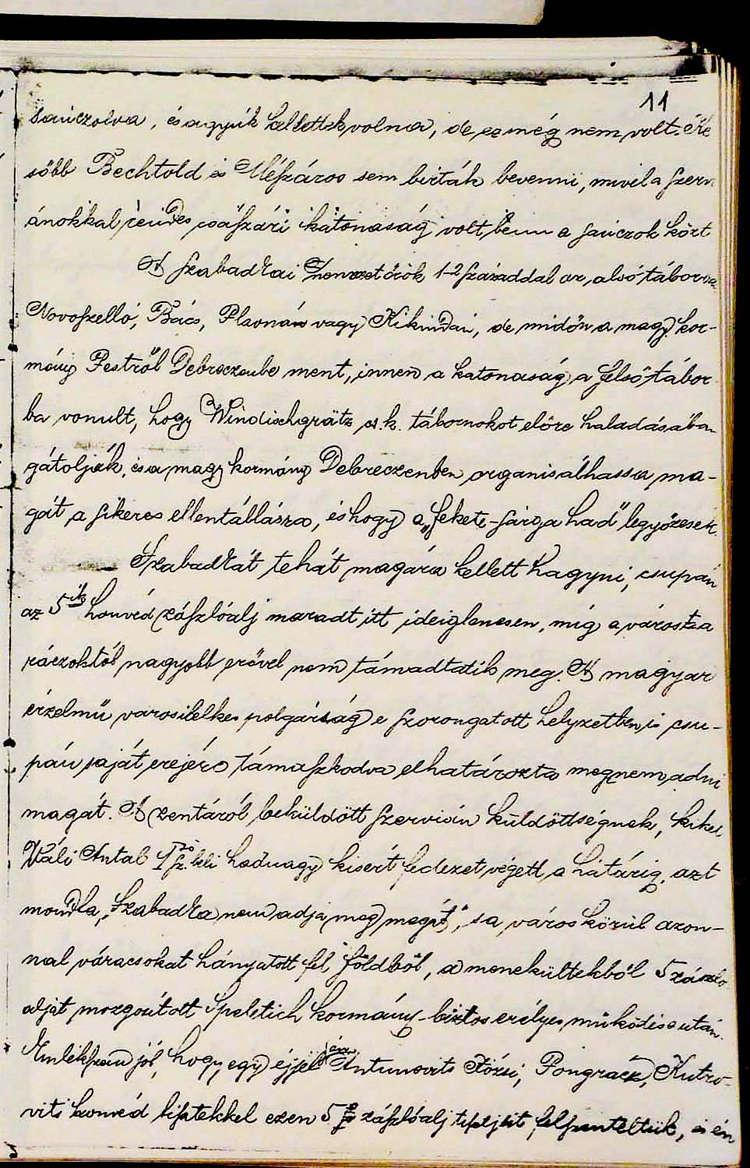 11
sánczolva, és agyúk kellettek volna, de ez még nem volt. Ké
sőbb Bechtold és Mészáros sem birták bevenni, mivel a szervi
ánokkal rendes császári katonaság volt benn a sánczok közt
A szabadkai nemzetőrök 1-2 századdal az alsó táborra
Novoszelló, Bács, vagy Kikindai, de midőn a magy. kor-
mány Pestről Debreczenbe ment, innen a katonaság a felső tábor-
ba vonult, hogy Windischgrätz cs. k. tábornokot előre haladásába
gátolják, és a magy kormány Debreczenben organisálhassa ma-
gát a sikeres ellentállásra, és hogy a „fekete-sárga had" legyőzessék.
Szabadkát tehát magára kellett hagyni, csupán
az 5ik honvéd zászlóalj maradt itt ideiglenesen, míg a város a
ráczoktól nagyobb erővel nem támadtatik meg. A magyar
érzelmű városi lelkes polgárság e szorongatott helyzetben is csu-
pán saját erejére támaszkodva elhatározta meg nem adni
magát. A zentáról beküldött szervián küldöttségnek, kiket
Váli Antal hadnagy kisért fedezet végett a határig, azt
mondta, „Szabadka nem adja meg magát", s a város körül azon-
nal váracsokat hányatott fel földből, a menekültekből 5 zászló
alját mozgósított kormány-biztos erélyes működése után.
Emlékszem jól, hogy egy éjjel én Antunovits Józsi, Pongrácz, Kutro-
vits honvéd tisztekkel ezen 5 zászlóalj tisztjeit felszenteltük, és én